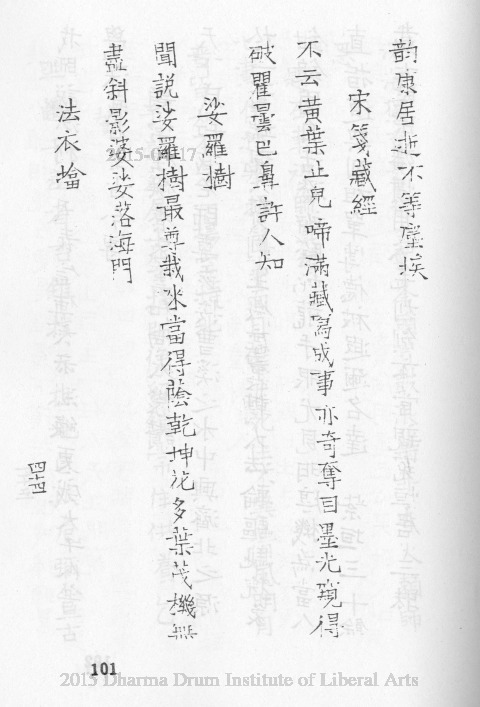 韵康居逝不等塵埃
宋箋藏經
不云黃葉止兒啼滿藏寫成事亦奇奪目墨光窺得
破瞿曇巴鼻許人知
娑羅樹
聞說娑羅樹最尊栽來當得蔭乾坤花多葉茂機無
盡斜影婆娑落海門
法衣
四十四
101
2015 Dharma Drum Institute of Liberal Arts